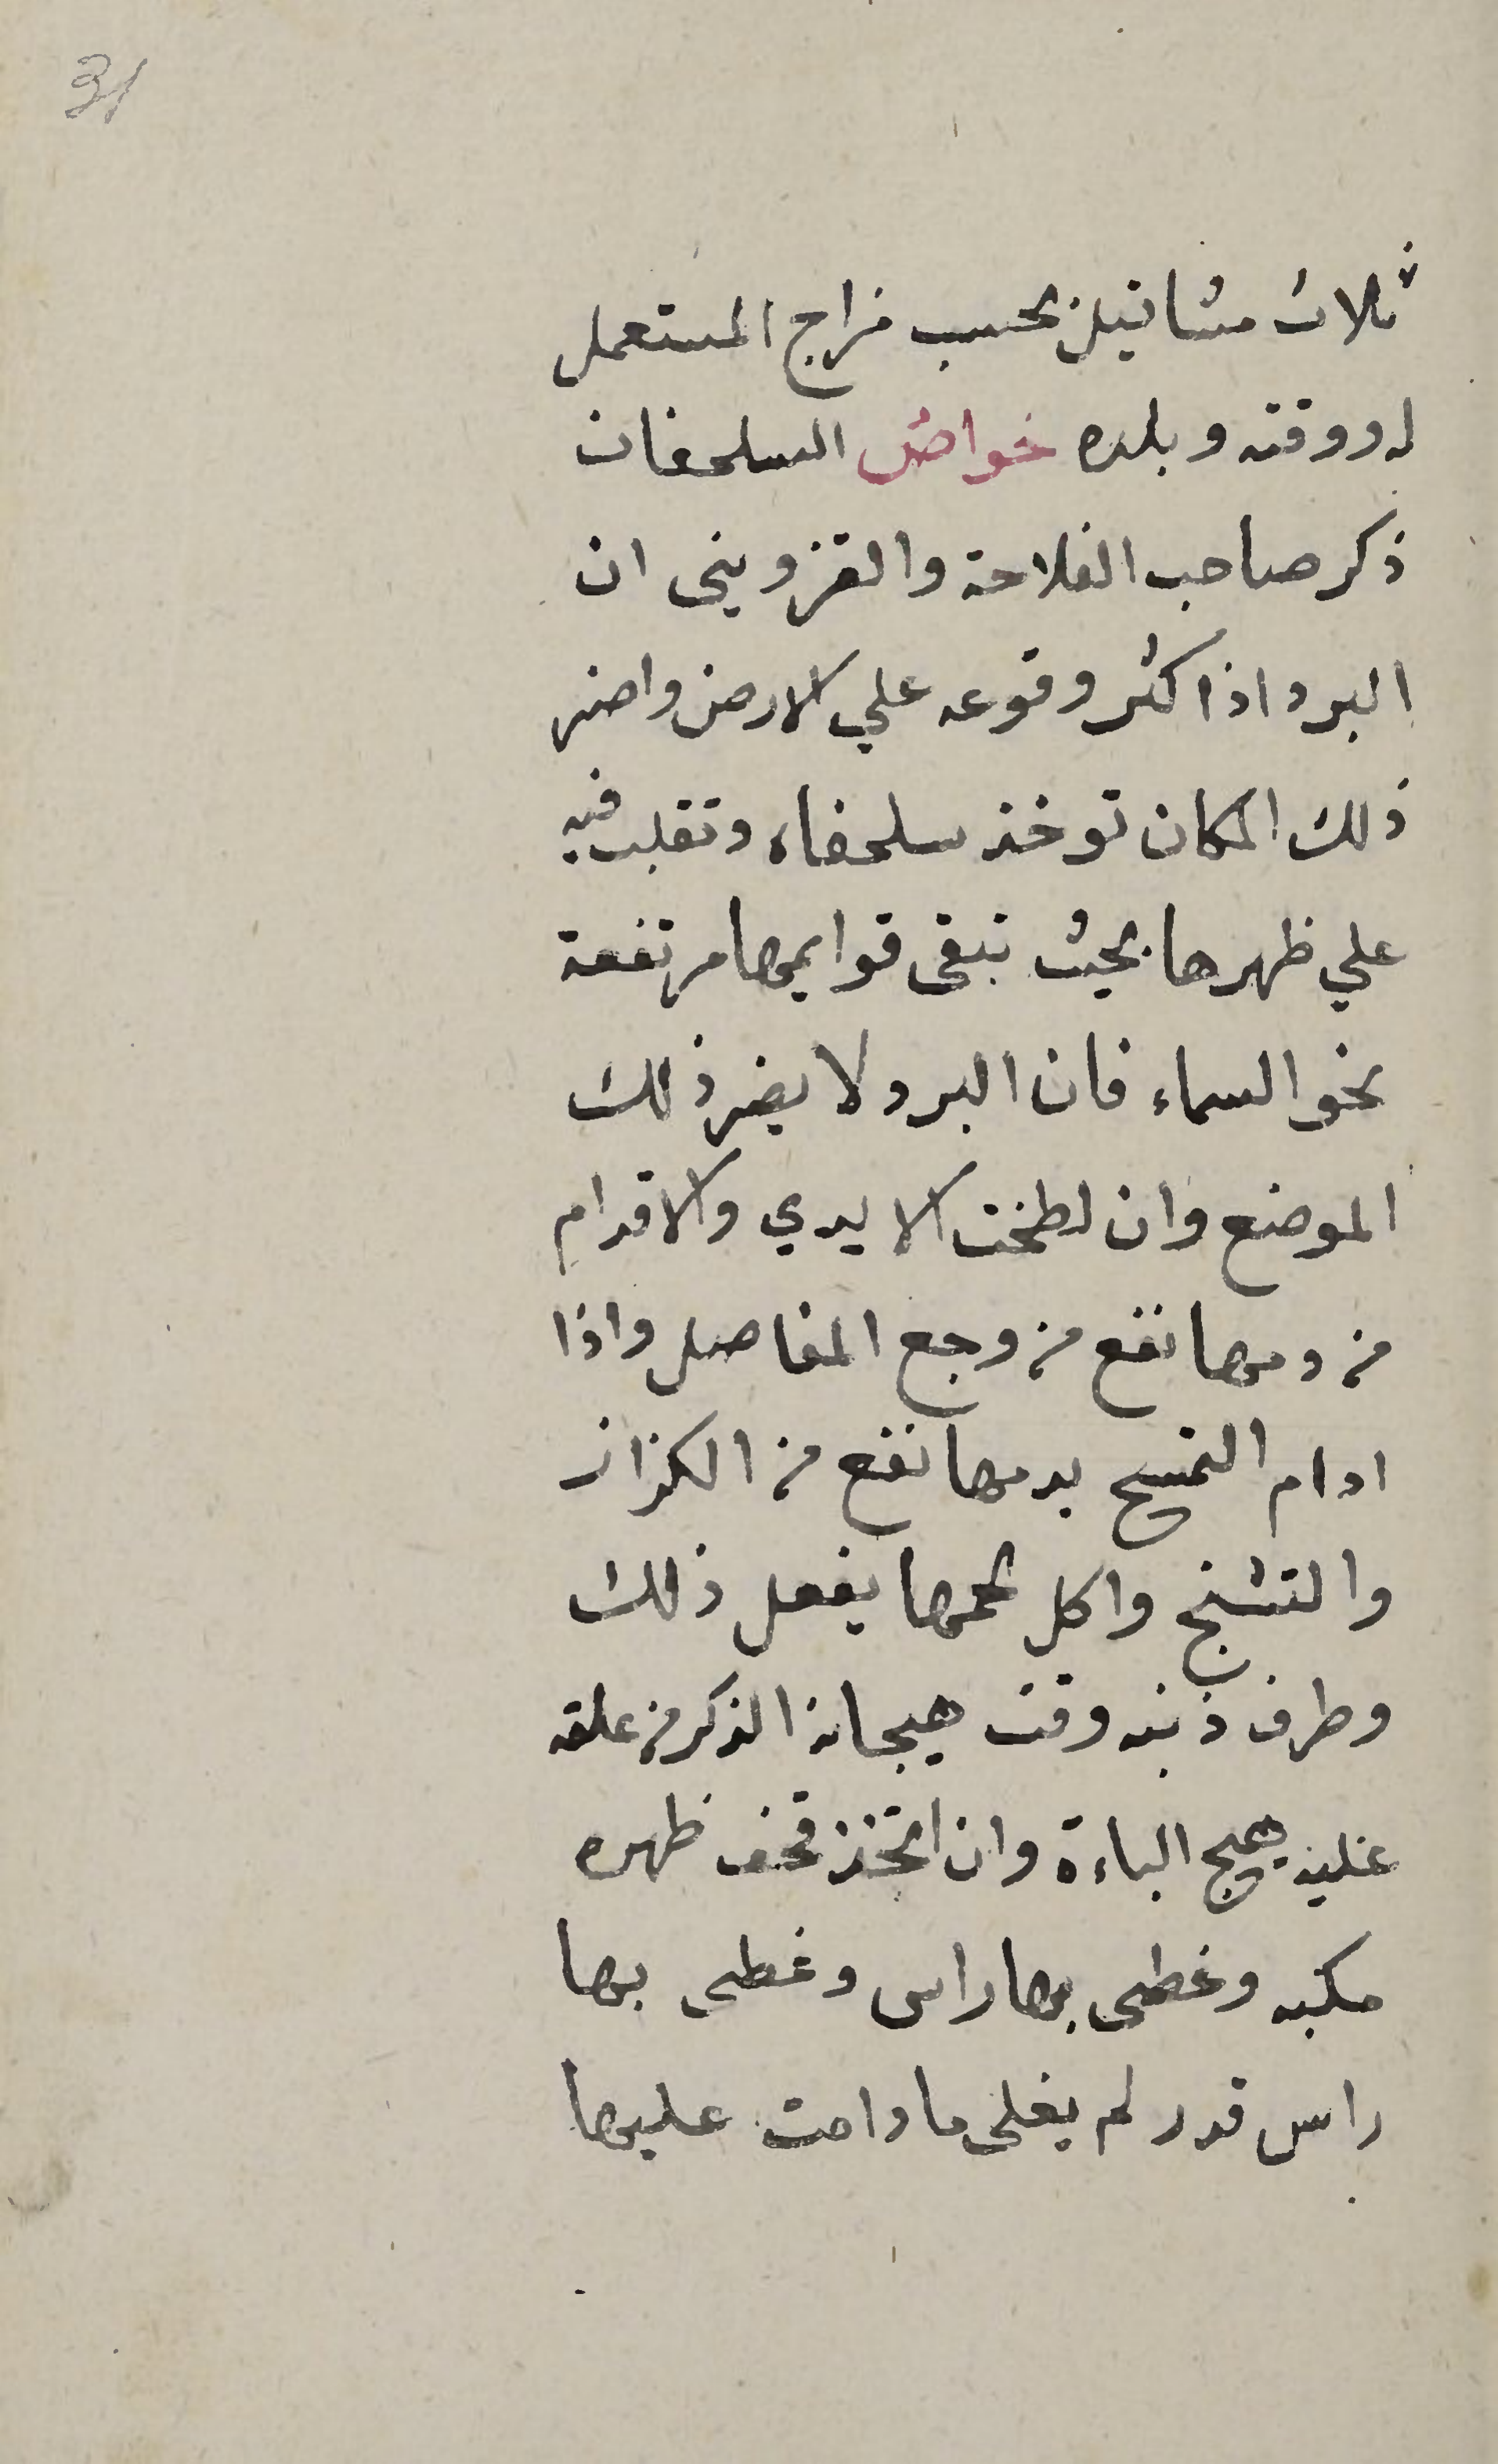 31
ثلاث مثاقيل بحسب مزاج المستعمل
له ووقته وبلده خواص السلحفات
ذكر صاحب الفلاحة والقزويني ان
البرد اذا كثر وقوعه علي الارض واضر
ذلك المكان توخذ سلحفاه وتقلب فيه
علي ظهرها بحيث تبقى قوايمها مرتفعة
نحو السماء فان البرد لا يضر ذلك
الموضع وان لطخت الايدي والاقدام
من دمها نفع من وجع المفاصل واذا
ادام التمسح بدمها نفع من الكزاز
والتشنج واكل لحمها يفعل ذلك
وطرف ذنبه وقت هيجان الذكر من علقه
عليه يهيج الباءة وان اتخذ قحف ظهره
مكبه وغطى بها راس وغطى بها
راس قدر لم يغلى ما دامت عليها